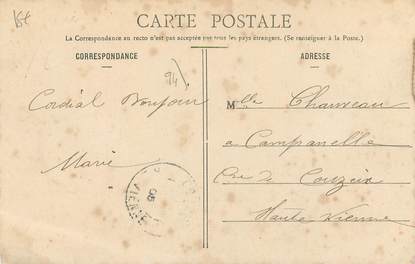 CARTE POSTALE
La Correspondance au recto n'est pas acceptée par tous les pays étrangers. (Se renseigner à la Poste.)
CORRESPONDANCE
ADRESSE
94
Cordial Bonjour
Marie
Mlle Chauveau
a Campanelle
Cne de Couzeix
Haute Vienne
VIENNE